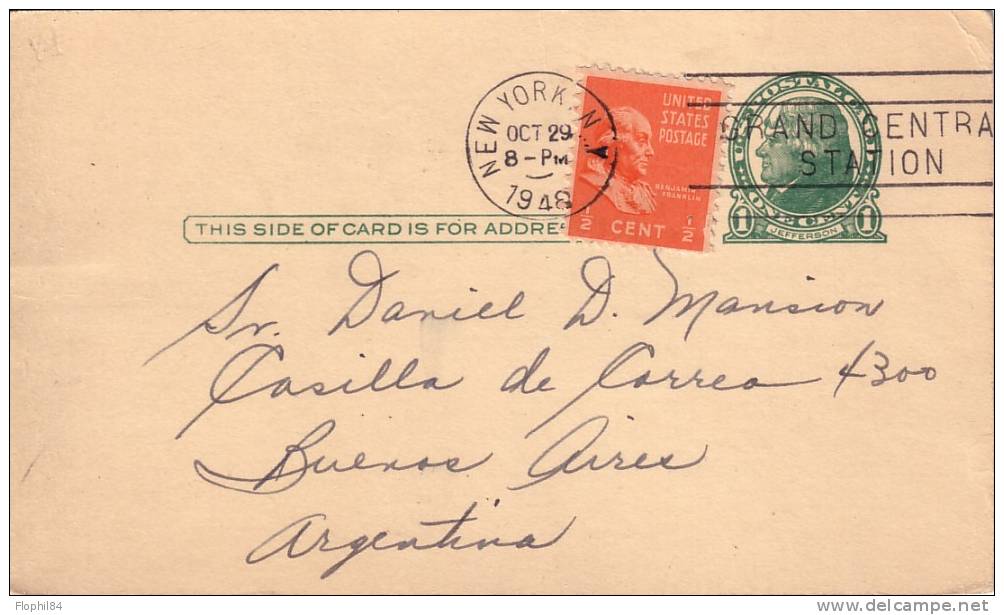 NEW YORK, N.Y.
OCT 29
8 - PM
1948
UNITED
STATES
POSTAGE
BENJAMIN
FRANKLIN
1/2 CENT 1/2
GRAND CENTRA
STATION
U.S. POSTAL CARD
1 ONE CENT 1
JEFFERSON
THIS SIDE OF CARD IS FOR ADDRE
Sr. Daniel D. Mansion
Casilla de Correo 4300
Buenos Aires
Argentina
Flophil84
http://www.delcampe.net